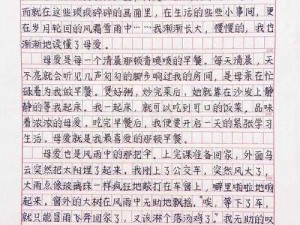 而在这些琐琐碎碎的画面里，在生活的些些小事间，更
在岁月轮回的风霜雪雨中……我渐渐长大，慢慢的，我也
渐渐地读懂了母爱。
母爱是每一个清晨那顿香喷喷的早餐。每天清晨，天
不亮就会听见几声匆匆的脚步响过我的房间，是母亲在忙
碌着为我做早餐。煲好粥，炒完菜后，她就靠在沙发上静
静的等我起床。我一起床，就可以吃到可口的饭菜，品味
着浓浓的母爱。吃完早餐后，我便要开启一天的紧张学习
生活。母爱就是我最喜爱的那顿早餐。
母爱也是风雨中的那把伞。上完课准备回家，外面乌
云突然把太阳埋了起来，我刚上了公交车，突然风大了，
大雨点像玻璃珠一样疯狂地敲打在车窗上，噼里啪啦地响
起来，窗外的大树在风雨中无助地飘摇，“唉，等下了车，
就只能冒雨飞奔回家了，又该淋个落汤鸡了。”我无助的叹